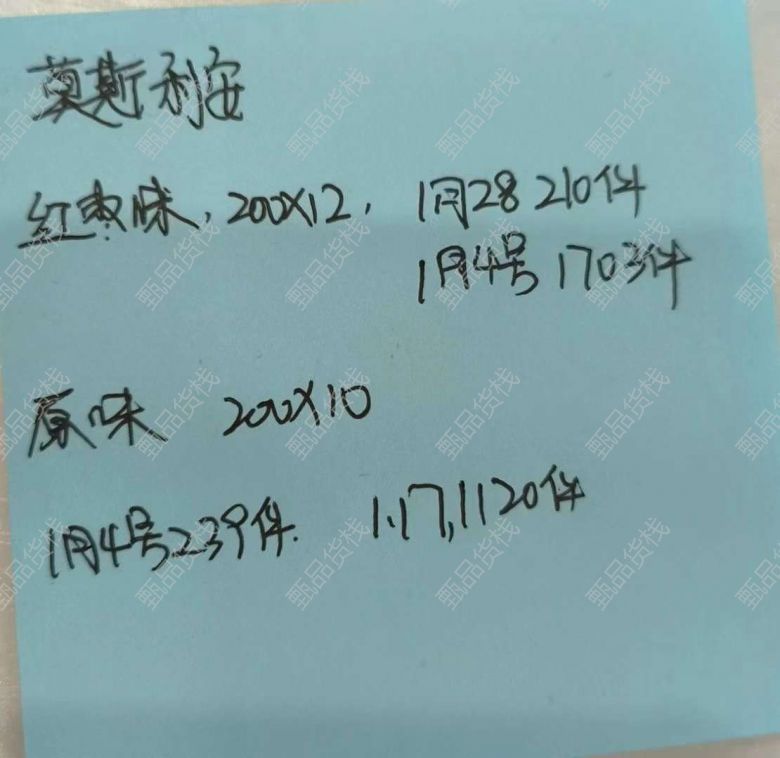 莫斯利安
红枣味, 200X12, 1月28 210件
1月4号 1703件
原味 200X10
1月4号239件. 1.17,1120件
甄品货栈